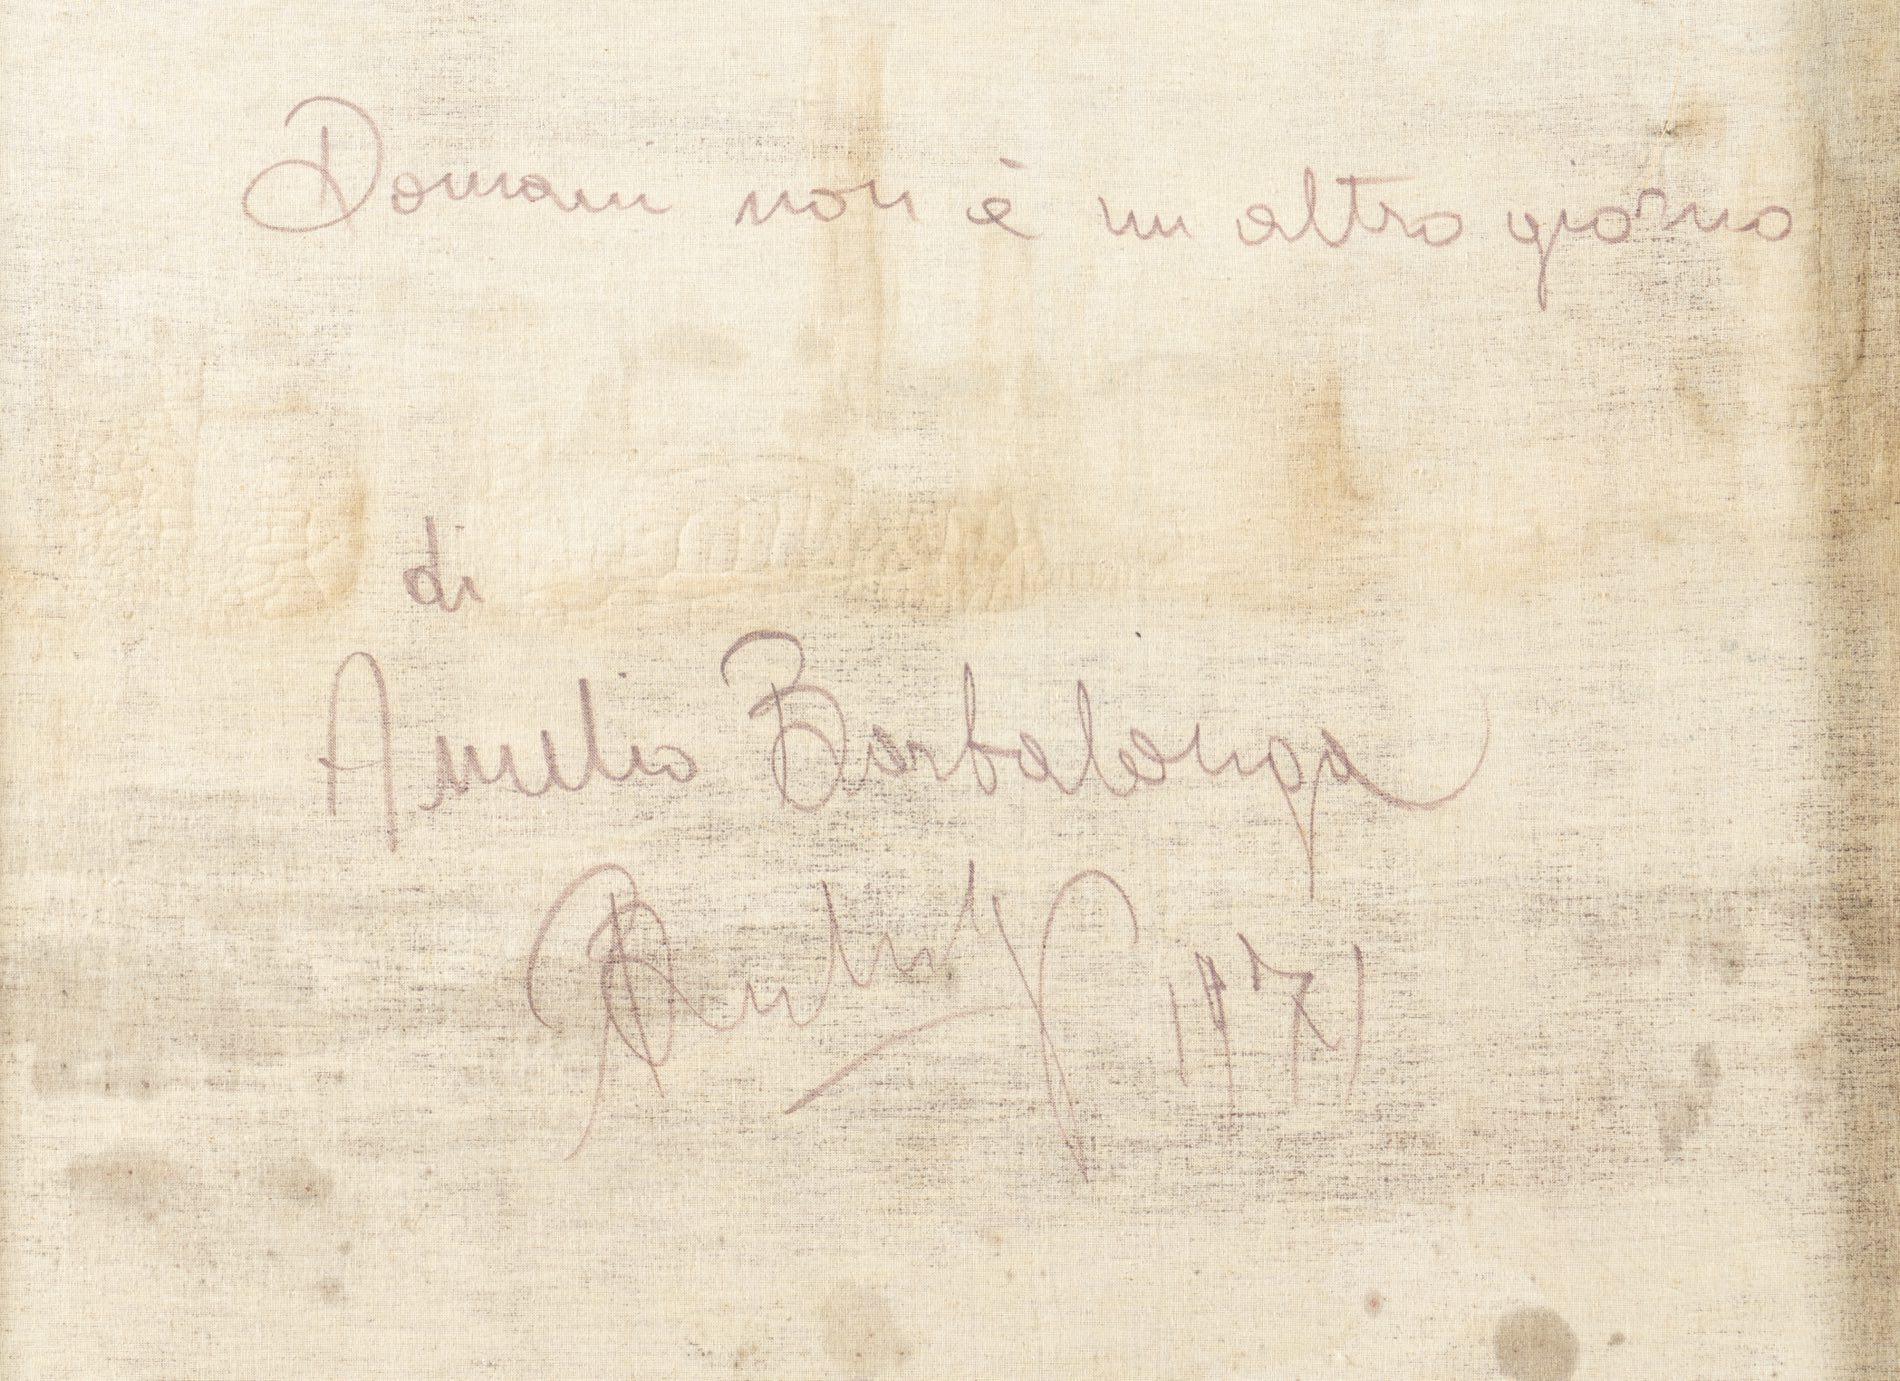 Domani non è un altro giorno
di
Amelio Barbalonga
1971